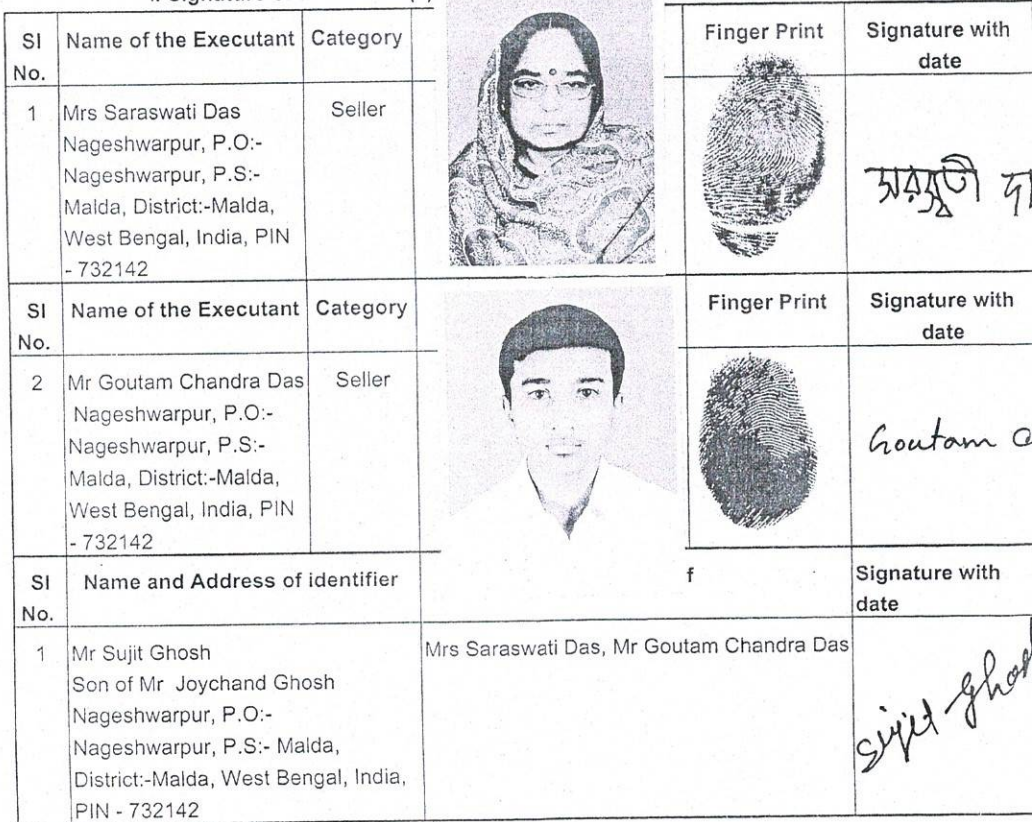 Signature
SI No. Name of the Executant Category Finger Print Signature with date
1 Mrs Saraswati Das Seller
Nageshwarpur, P.O:-
Nageshwarpur, P.S:-
Malda, District:-Malda,
West Bengal, India, PIN
- 732142
সরস্বতী দা
SI No. Name of the Executant Category Finger Print Signature with date
2 Mr Goutam Chandra Das Seller
Nageshwarpur, P.O:-
Nageshwarpur, P.S:-
Malda, District:-Malda,
West Bengal, India, PIN
- 732142
Goutam C
SI No. Name and Address of identifier f Signature with date
1 Mr Sujit Ghosh Mrs Saraswati Das, Mr Goutam Chandra Das
Son of Mr Joychand Ghosh
Nageshwarpur, P.O:-
Nageshwarpur, P.S:- Malda,
District:-Malda, West Bengal, India,
PIN - 732142
Sujit Ghosh